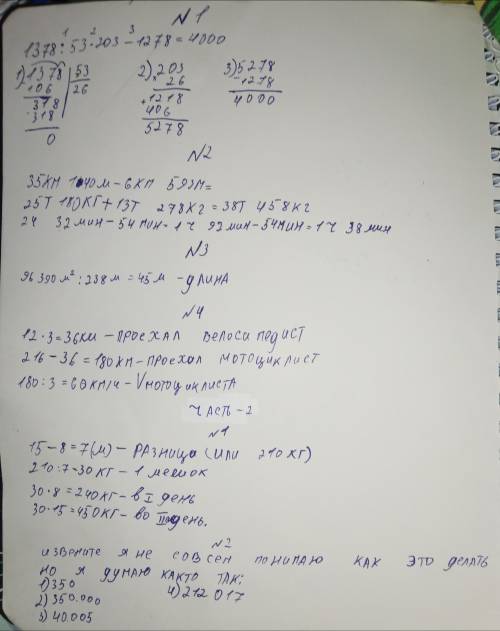 №1
1378:53·203-1278=4000
1) 1378 |53
106 26
318
318
0
2) 203
26
+1218
406
5278
3) 5278
-1278
4000
№2
35КМ 1040М-6КМ 592М=
25Т 180КГ+13Т 278КГ=38Т 458КГ
2Ч 32МИН-54МИН=1Ч 92МИН-54МИН=1Ч 38МИН
№3
96390М²:238М=45М-ДЛИНА
№4
12·3=36КМ-ПРОЕХАЛ ВЕЛОСИПЕДИСТ
216-36=180КМ-ПРОЕХАЛ МОТОЦИКЛИСТ
180:3=60КМ/Ч-VМОТОЦИКЛИСТА
ЧАСТЬ-2
№1
15-8=7(М)-РАЗНИЦА(ИЛИ 210КГ)
210:7=30КГ-1 МЕШОК
30·8=240КГ-в I день
30·15=450КГ-во II день.
№2
извените я не совсем понимаю как это делать
но я думаю както так:
1) 350
2) 350.000
3) 40.005
4) 212 017